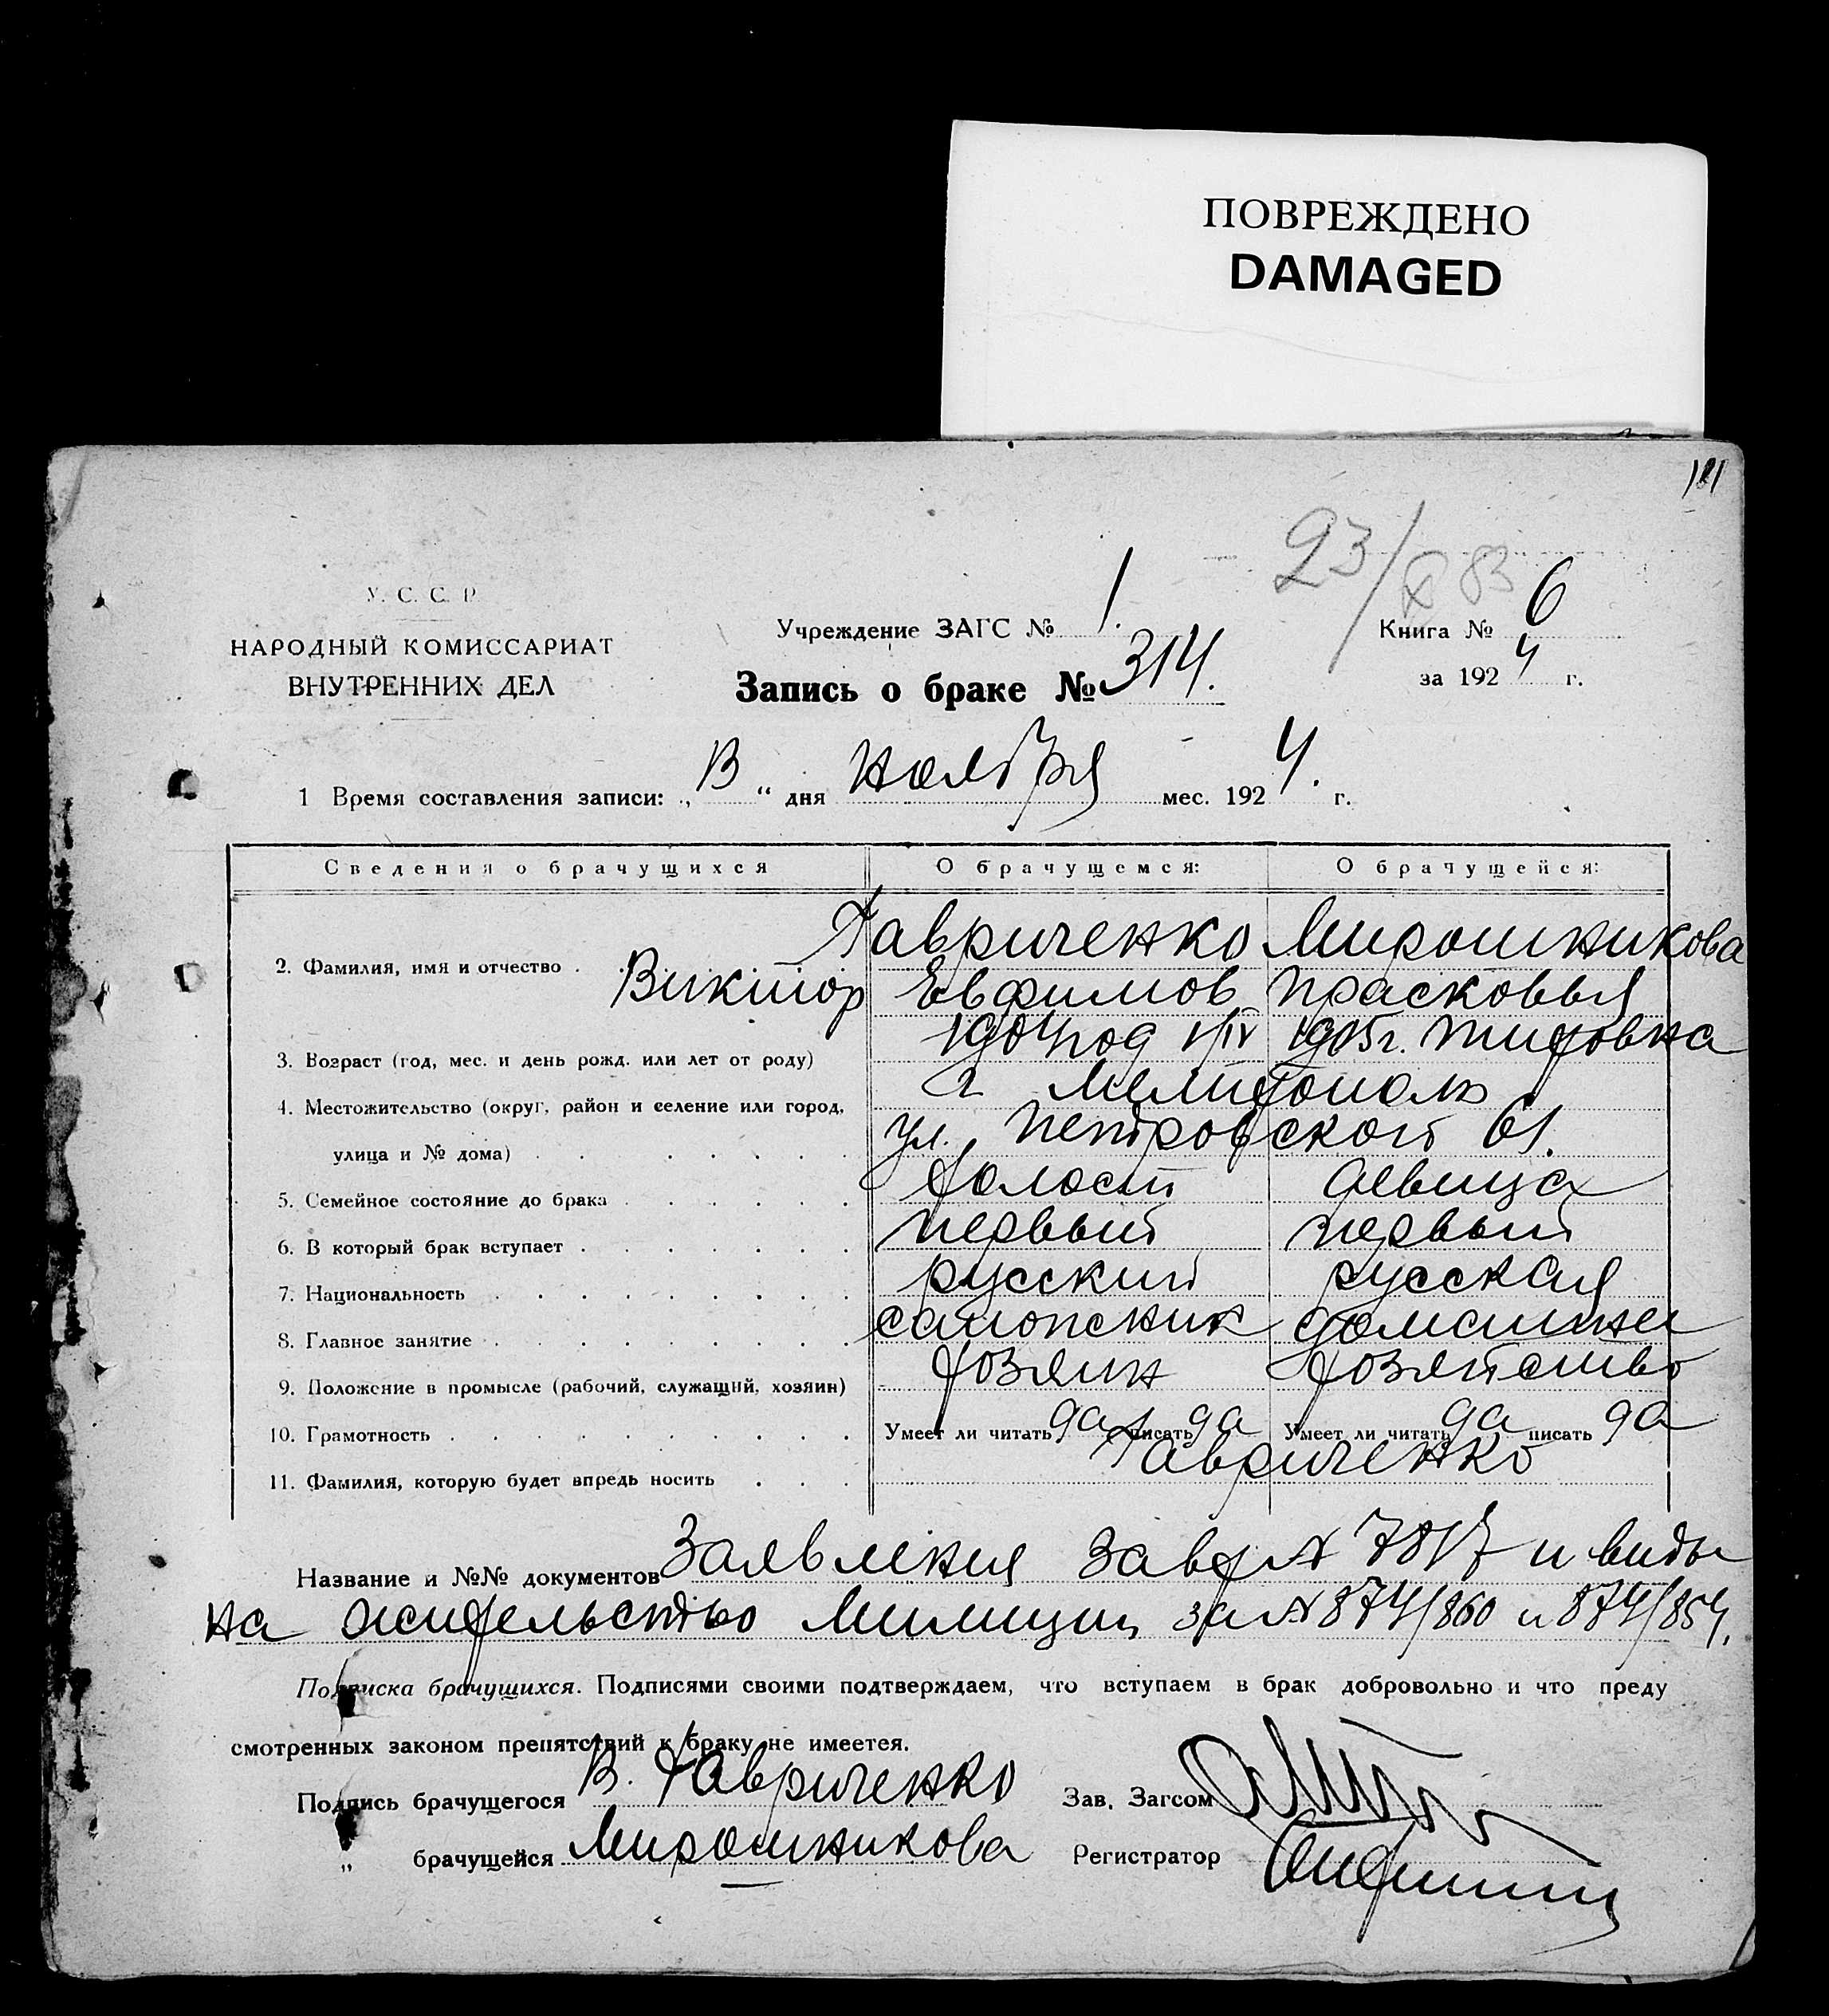 ПОВРЕЖДЕНО
DAMAGED
181
23/X 83
У. С. С. Р.
НАРОДНЫЙ КОМИССАРИАТ
ВНУТРЕННИХ ДЕЛ
Учреждение ЗАГС № 1.
Книга № 6
Запись о браке № 314.
за 1924 г.
1 Время составления записи: „13“ дня ноября мес. 1924. г.
Сведения о брачущихся О брачущемся: О брачущейся:
Гавриченко Мирошникова
2. Фамилия, имя и отчество Виктор Евфимов Прасковья
1904 год 1/IV 1905 г. Титовна
3. Возраст (год, мес. и день рожд. или лет от роду)
г Мелитополь
4. Местожительство (округ, район и селение или город,
ул. Петровской 61.
улица и № дома)
5. Семейное состояние до брака холост девица
6. В который брак вступает первый первый
7. Национальность русский русская
8. Главное занятие сапожник домашнее
9. Положение в промысле (рабочий, служащий, хозяин) хозяин хозяйство
10. Грамотность Умеет ли читать да писать да Умеет ли читать да писать да
11. Фамилия, которую будет впредь носить Гавриченко
Название и №№ документов Заявления за № 7817 и виды
на жительство Милиции за № 874/860 и 874/854.
Подписка брачущихся. Подписями своими подтверждаем, что вступаем в брак добровольно и что преду
смотренных законом препятствий к браку не имеется.
Подпись брачущегося В. Гавриченко Зав. Загсом
„ брачущейся Мирошникова Регистратор